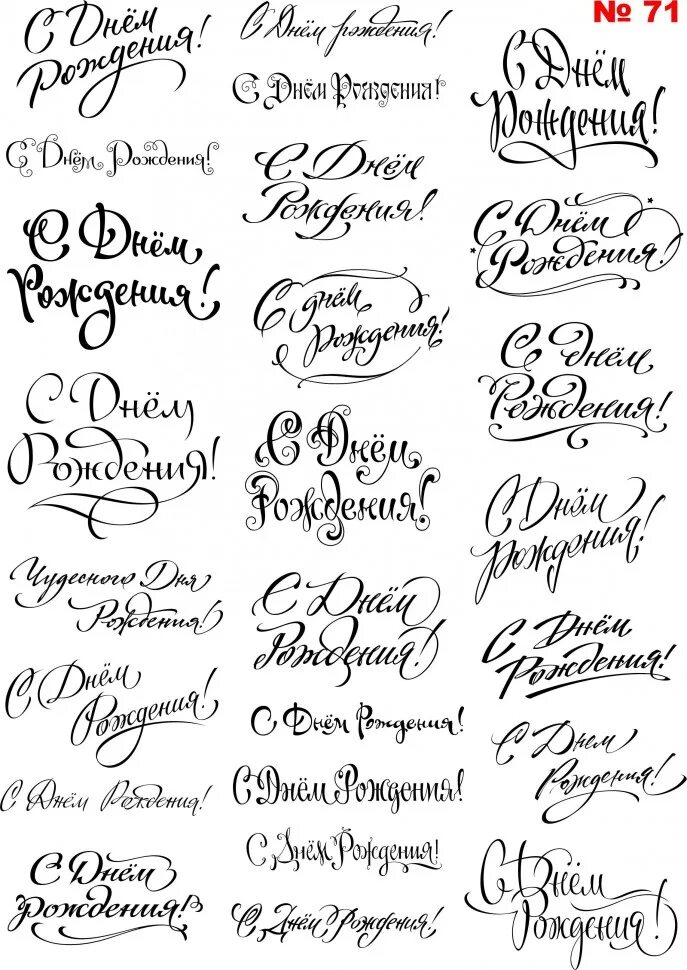 № 71
С Днём
Рождения!
С Днём Рождения!
С Днём
Рождения!
С Днём
Рождения!
Чудесного Дня
Рождения!
С Днём
Рождения!
С Днём Рождения!
С Днём
Рождения!
С Днём рождения!
С Днём Рождения!
С Днём
Рождения!
С днём
Рождения!
С Днём
Рождения!
С Днём
Рождения!
С Днём Рождения!
С Днём Рождения!
С Днём Рождения!
С Днём Рождения!
С Днём
Рождения!
С Днём
Рождения!
С днём
Рождения!
С Днём
Рождения!
С Днём
Рождения!
С Днем
Рождения!
С Днём
Рождения!